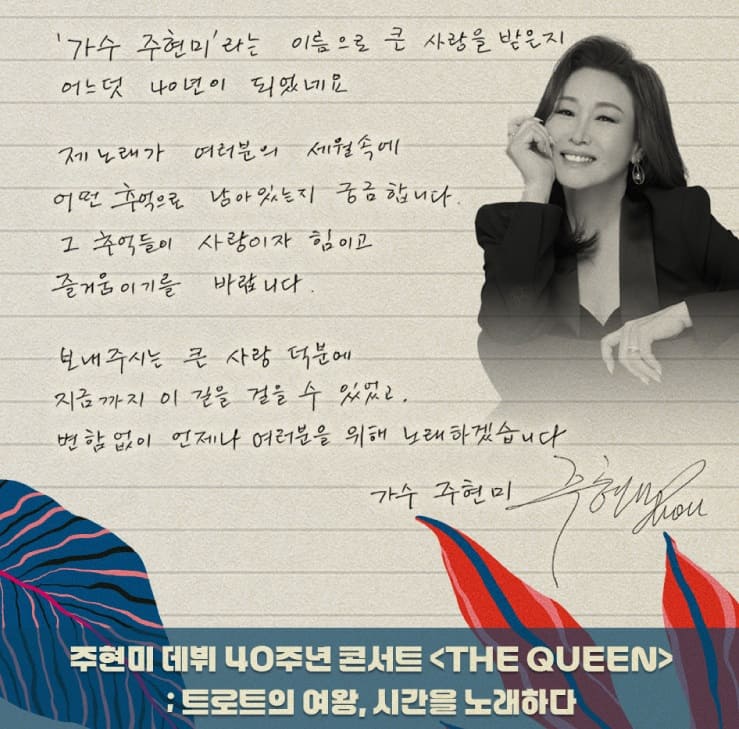 '가수 주현미'라는 이름으로 큰 사랑을 받은지
어느덧 40년이 되었네요
제 노래가 여러분의 세월속에
어떤 추억으로 남아있는지 궁금합니다.
그 추억들이 사랑이자 힘이고
즐거움이기를 바랍니다.
보내주시는 큰 사랑 덕분에
지금까지 이 길을 걸을 수 있었고,
변함없이 언제나 여러분을 위해 노래하겠습니다
가수 주현미 주현미
주현미 데뷔 40주년 콘서트 <THE QUEEN>
; 트로트의 여왕, 시간을 노래하다